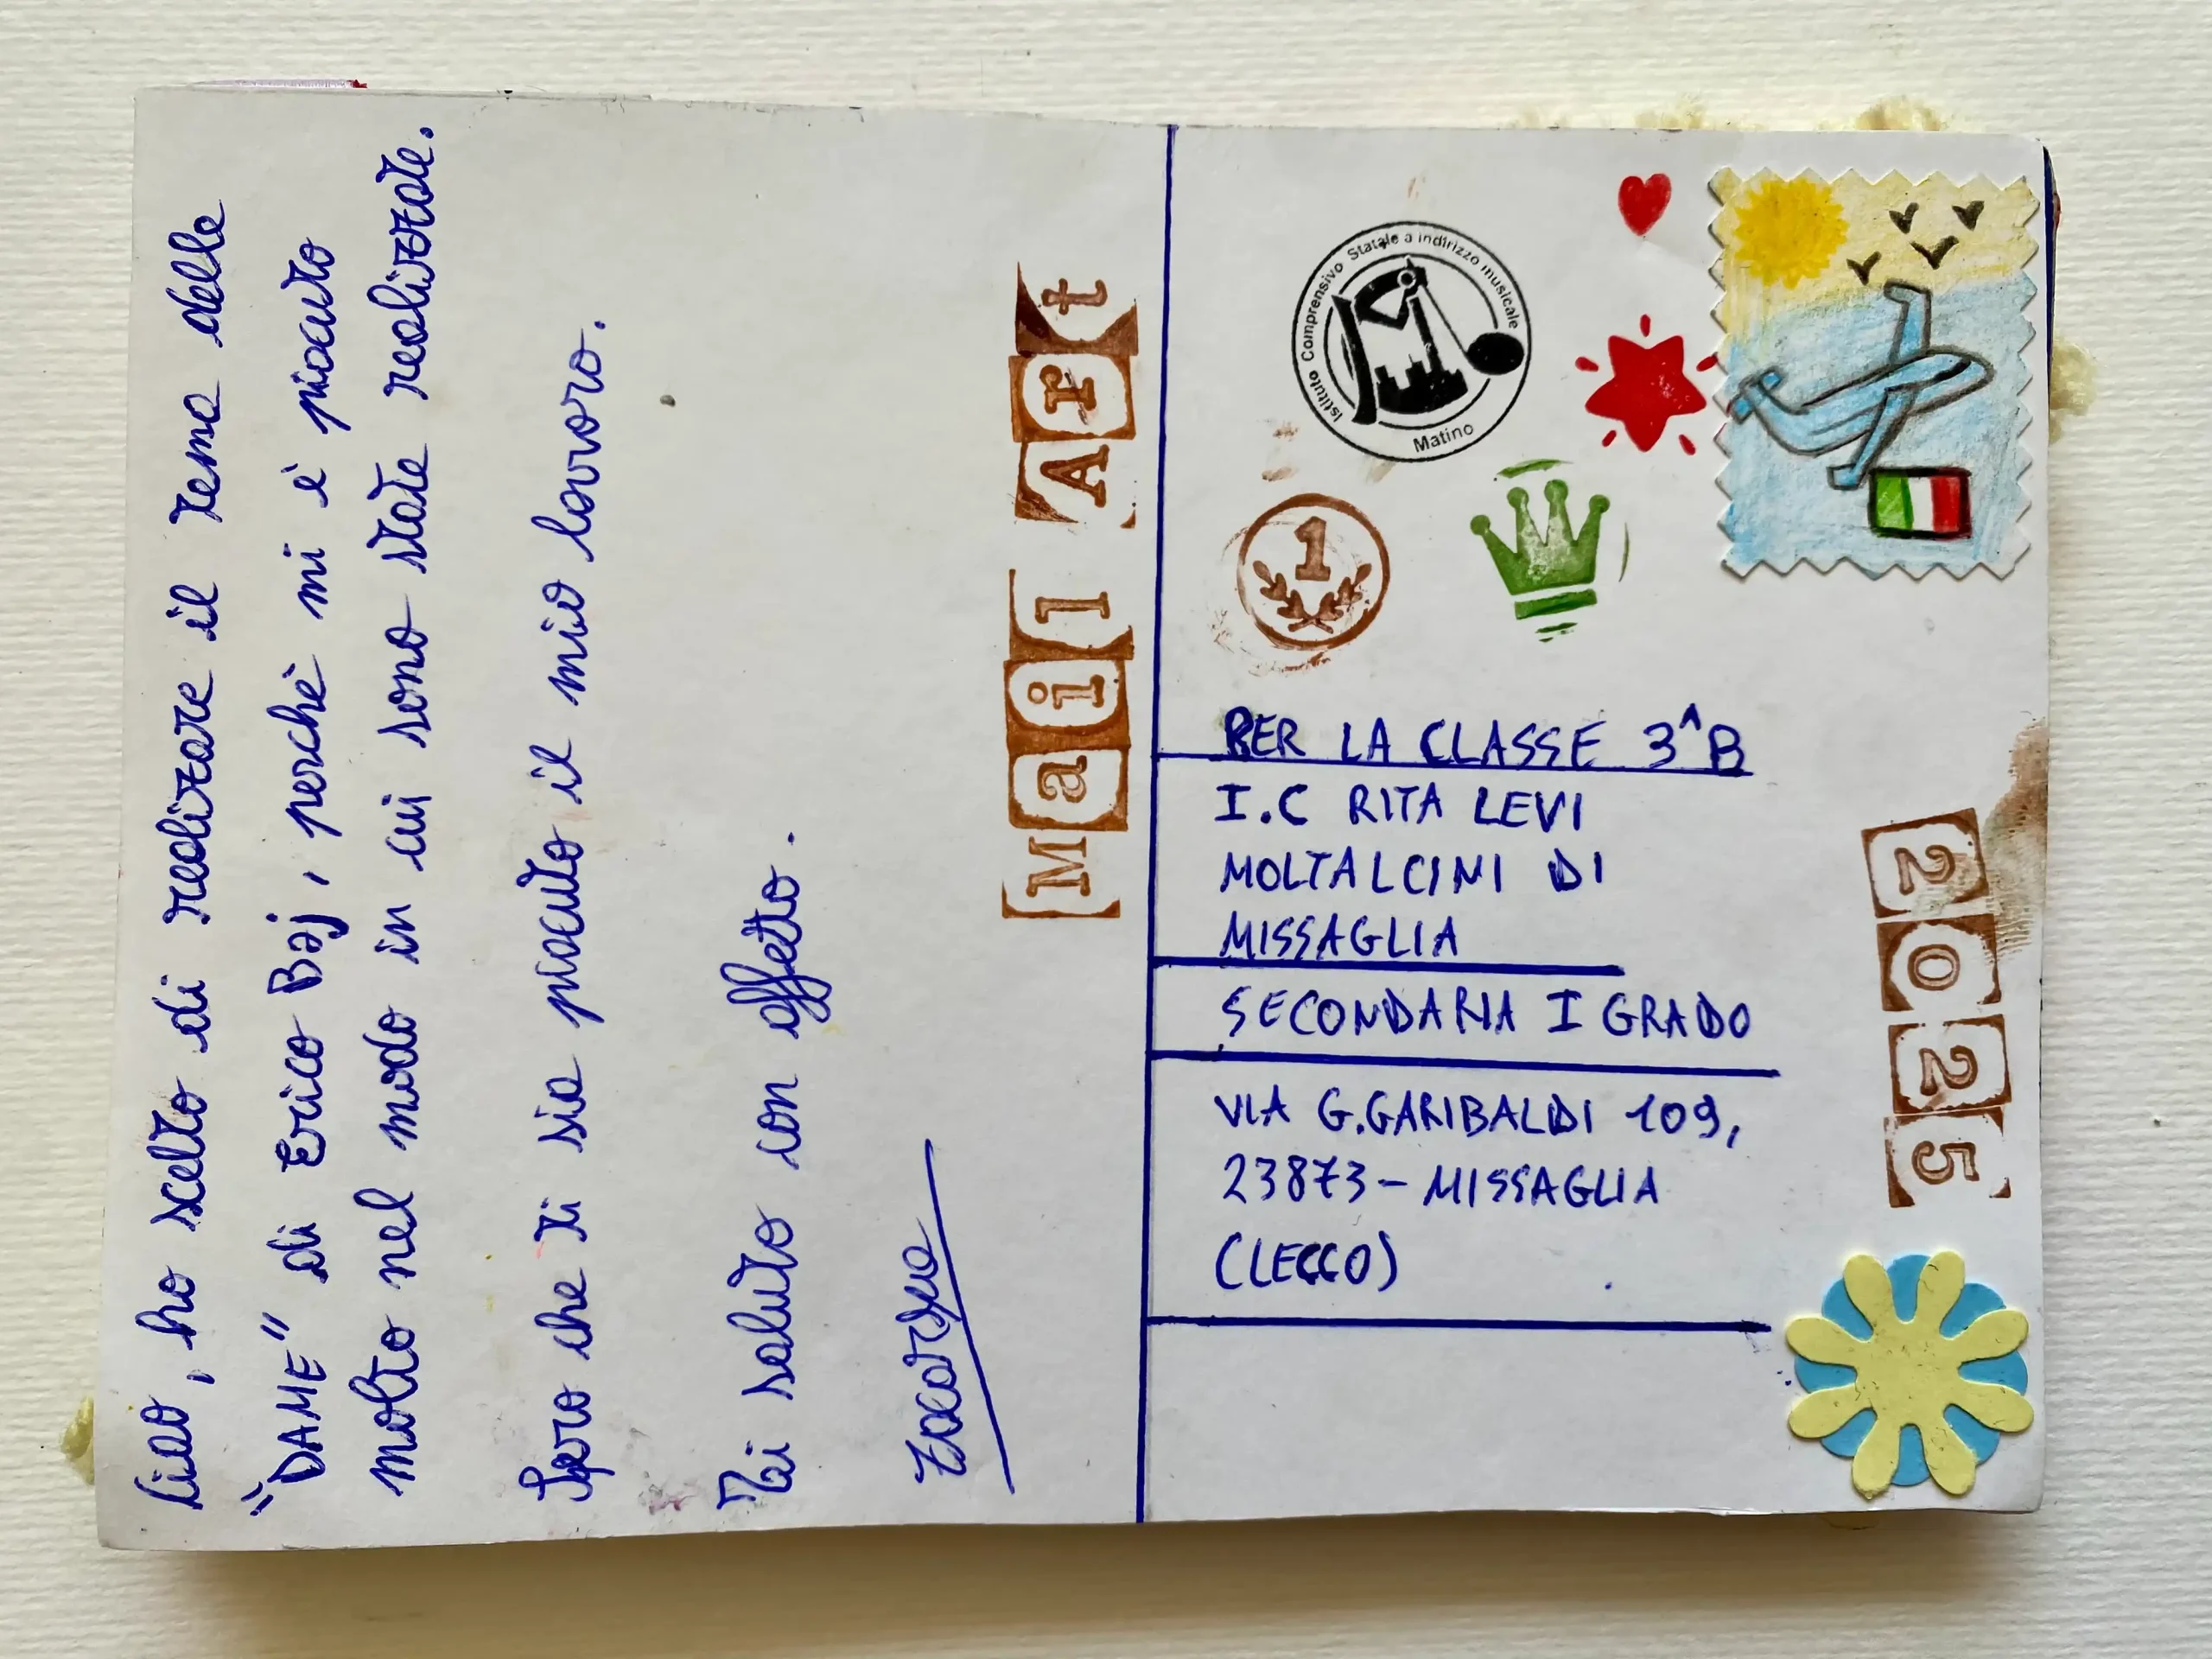 Ciao, ho scelto di realizzare il tema delle
"DAME" di Erico Baj, perchè mi è piaciuto
molto nel modo in cui sono state realizzate.
Spero che ti sia piaciuto il mio lavoro.
Ti saluto con affetto.
Mail Art
Istituto Comprensivo Statale a indirizzo musicale
Matino
1
PER LA CLASSE 3^B
I.C RITA LEVI
MOLTALCINI DI
MISSAGLIA
SECONDARIA I GRADO
VIA G.GARIBALDI 109,
23873-MISSAGLIA
(LECCO)
2025